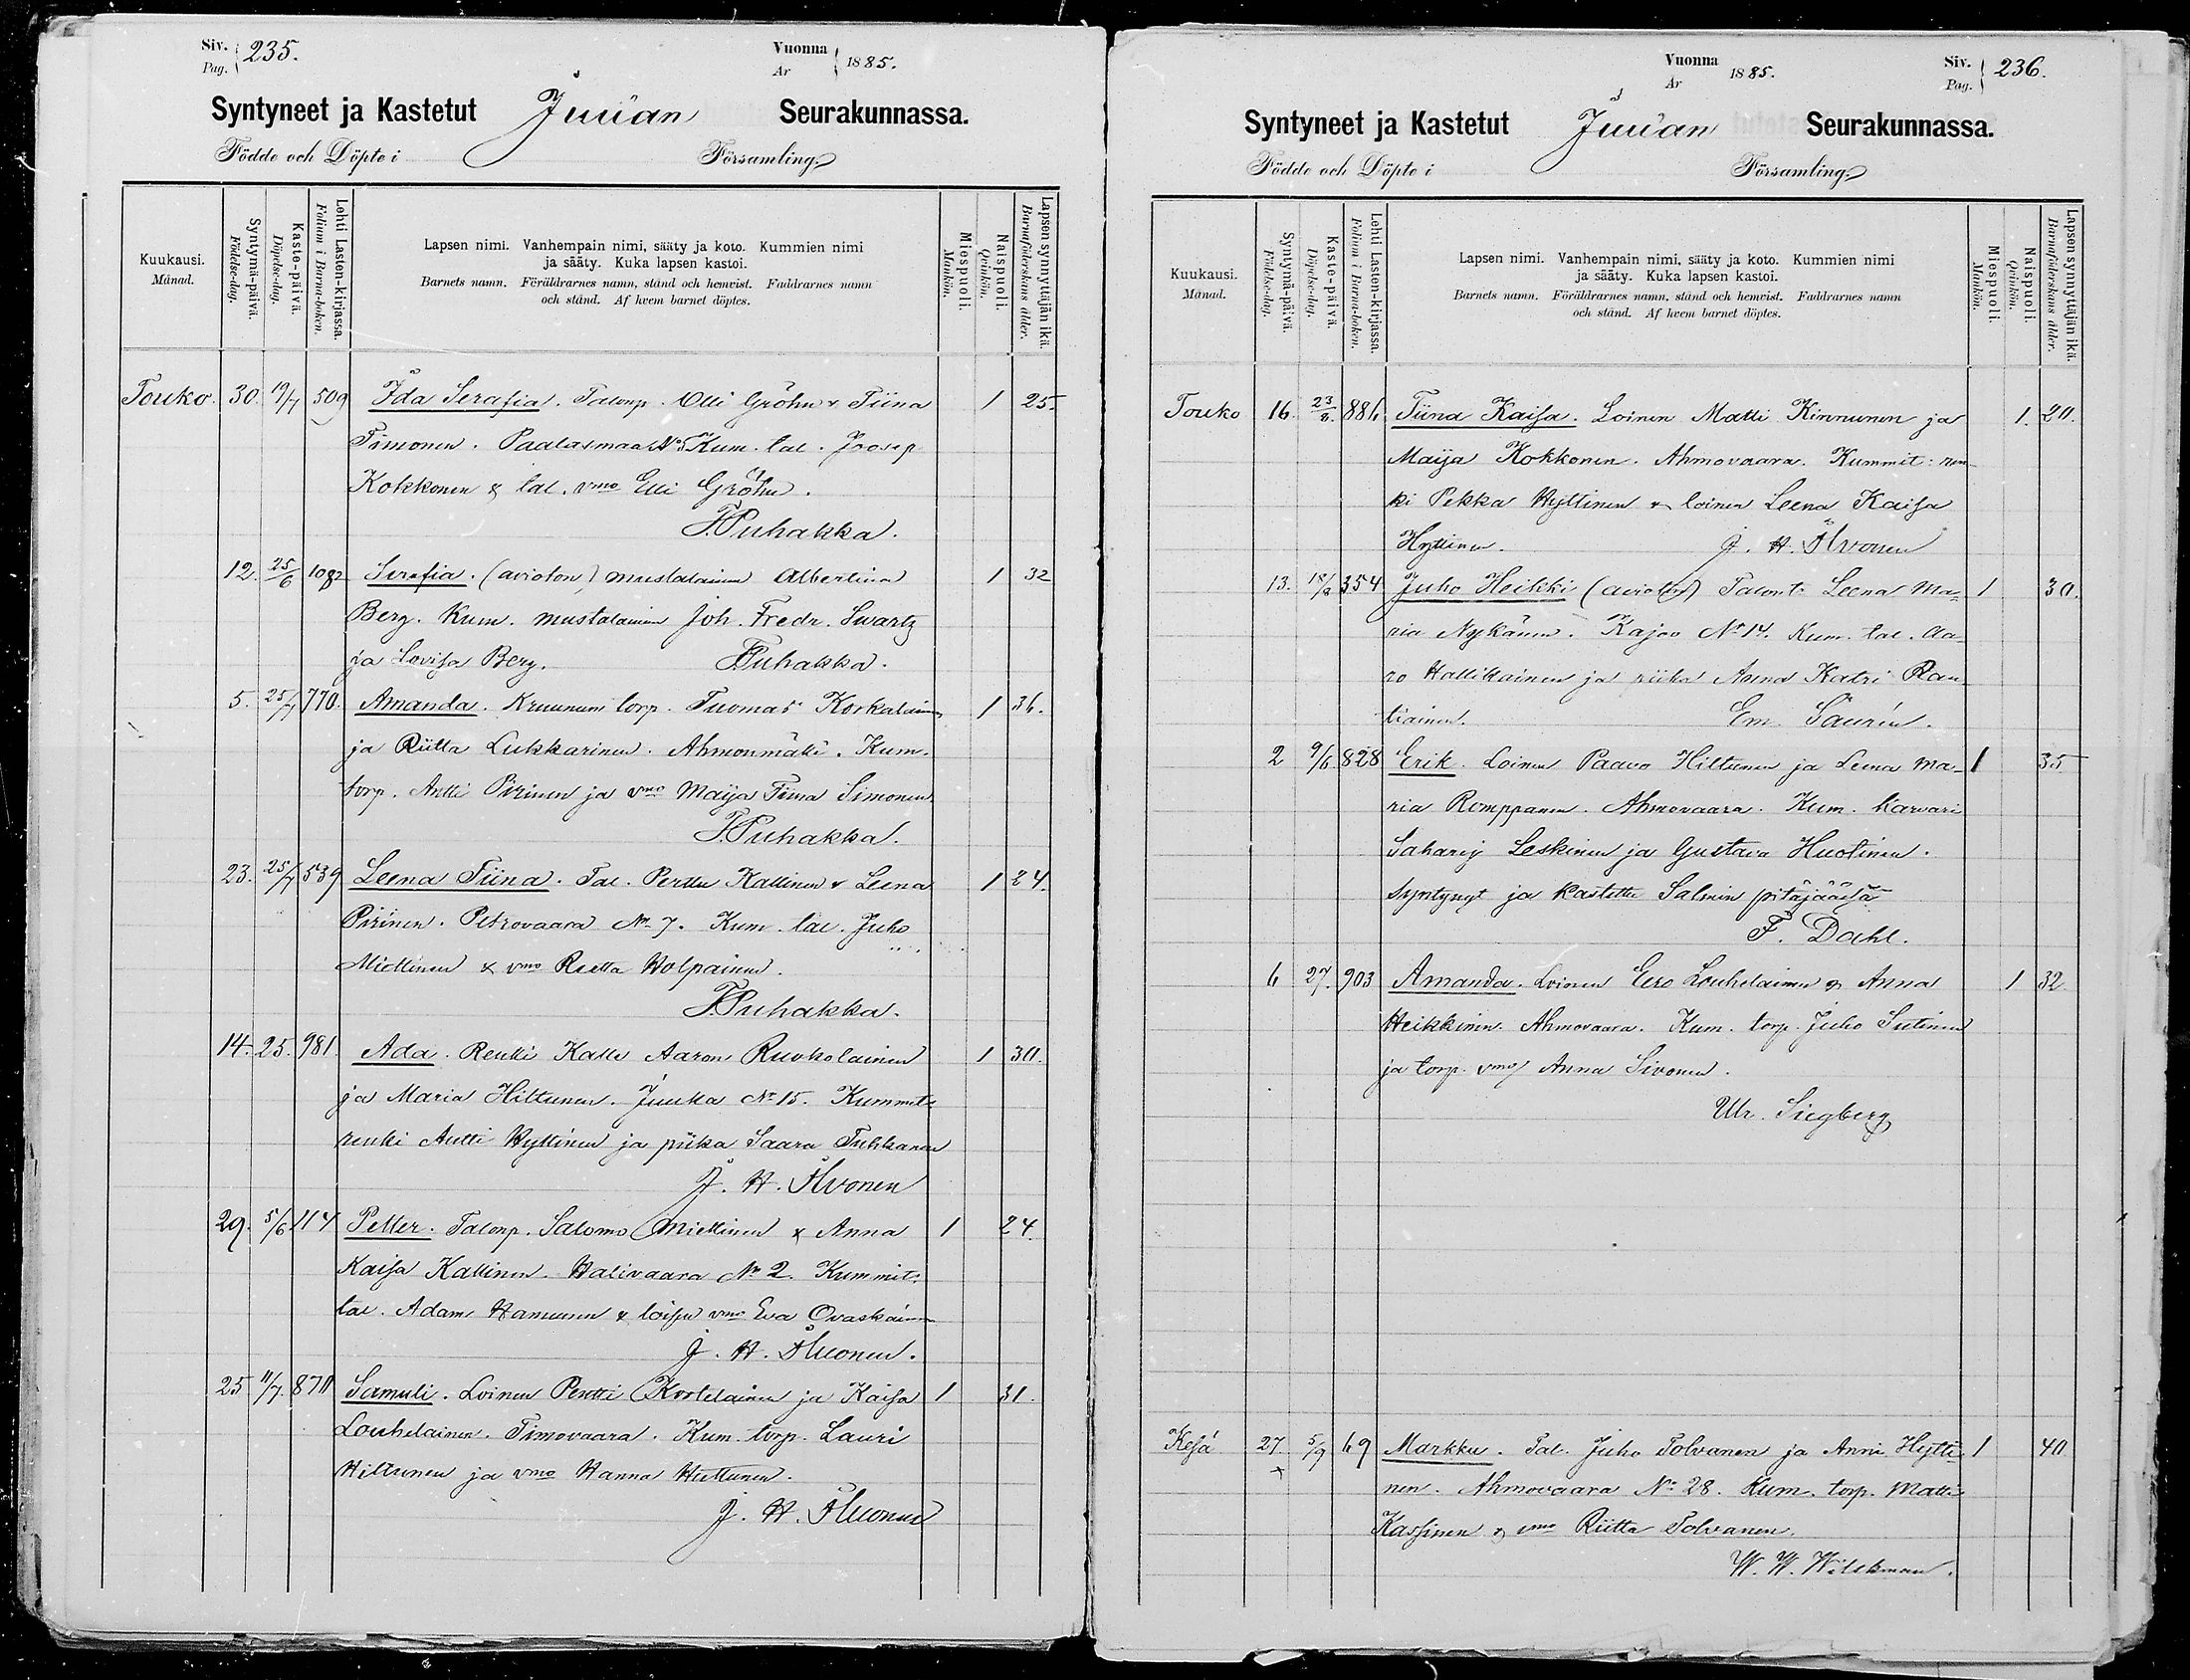 Siv. 235.
Pag.
Vuonna 1885.
År
Syntyneet ja Kastetut Juuan Seurakunnassa.
Födde och Döpte i Församling.
Kuukausi.
Månad.
Syntymä-päivä.
Födelse-dag.
Kaste-päivä.
Döpelse-dag.
Lehti Lasten-kirjassa.
Folium i Barna-boken.
Lapsen nimi. Vanhempain nimi, sääty ja koto. Kummien nimi
ja sääty. Kuka lapsen kastoi.
Barnets namn. Föräldrarnes namn, stånd och hemvist. Faddrarnes namn
och stånd. Af hvem barnet döptes.
Miespuoli.
Mankön.
Naispuoli.
Qvinkön.
Lapsen synnyttäjän ikä.
Barnaföderskans ålder.
Touko. 30. 19/7 509 Ida Serafia. Talonp. Olli Gröhn & Tiina 1 25.
Timonen. Paalasmaa No 5 Kum. tal. Joosep
Kokkonen & tal. vmo Elli Gröhn.
F. Puhakka.
12. 25/6 1082 Serafia. (avioton) mustalainen Albertina 1 32
Berg. Kum. mustalainen Joh. Fredr. Swartz
ja Lovisa Berg. F. Puhakka.
5. 25/7 770. Amanda. Kruunun torp. Tuomas Korkalainen 1 36.
ja Riitta Lukkarinen. Ahmonmäki. Kum.
torp. Antti Pirinen ja vmo Maija Tiina Simonen
F. Puhakka.
23. 25/7 539 Leena Tiina. Tal. Perttu Kallinen & Leena 1 24.
Pirinen. Petrovaara No 7. Kum. tal. Juho
Miettinen & vmo Reetta Wolpainen.
F. Puhakka.
14. 25. 981. Ada. Renki Kalle Aaron Ruokolainen 1 30.
ja Maria Hiltunen. Juuka No 15. Kummit:
renki Antti Hyttinen ja piika Saara Tuhkanen
J. H. Ihvonen
29. 5/6 114 Petter. Talonp. Salomo Miettinen & Anna 1 24.
Kaisa Kallinen. Halivaara No 2. Kummit:
tal. Adam Hämunen & loisen vmo Eva Ovaskainen
J. H. Ihvonen.
25 11/7. 870 Samuli. Loinen Pentti Kortelainen ja Kaisa 1 31.
Louhelainen. Timovaara. Kum. torp. Lauri
Hiltunen ja vmo Hanna Huttunen.
J. H. Ihvonen
Vuonna 1885.
År
Siv. 236.
Pag.
Syntyneet ja Kastetut Juuan Seurakunnassa.
Födde och Döpte i Församling.
Kuukausi.
Månad.
Syntymä-päivä.
Födelse-dag.
Kaste-päivä.
Döpelse-dag.
Lehti Lasten-kirjassa.
Folium i Barna-boken.
Lapsen nimi. Vanhempain nimi, sääty ja koto. Kummien nimi
ja sääty. Kuka lapsen kastoi.
Barnets namn. Föräldrarnes namn, stånd och hemvist. Faddrarnes namn
och stånd. Af hvem barnet döptes.
Miespuoli.
Mankön.
Naispuoli.
Qvinkön.
Lapsen synnyttäjän ikä.
Barnaföderskans ålder.
Touko 16. 23/8. 886 Tiina Kaisa. Loinen Matti Kinnunen ja 1. 20.
Maija Kokkonen. Ahmovaara. Kummit: ren-
ki Pekka Hyttinen & loinen Leena Kaisa
Hyttinen. J. H. Ihvonen
13. 18/8 354 Juho Heikki (avioton) Talont: Leena Ma- 1 30.
ria Nykänen. Kajoo No 14. Kum. tal. Aa-
ro Hallikainen ja piika Anna Katri Rau-
tiainen. Em. Saurén.
2 9/6. 828 Erik. Loinen Paavo Hiltunen ja Leena Ma- 1 35
ria Romppanen. Ahmovaara. Kum. karvari
Saharij Leskinen ja Gustava Huolinen.
Syntynyt ja kastettu Salmin pitäjäässä
F. Dahl.
6 27. 903 Amanda. Loinen Eero Louhelainen & Anna 1 32
Heikkinen. Ahmovaara. Kum. torp. Juho Sutinen
ja torp. vmo Anna Sivonen.
Ulr. Siegberg
Kesä 27. 5/9 69 Markku. Tal. Juho Tolvanen ja Anni Hytti- 1 40
nen. Ahmovaara No 28. Kum. torp. Matti
Kassinen & vmo Riitta Tolvanen.
W. W. Wilekman.